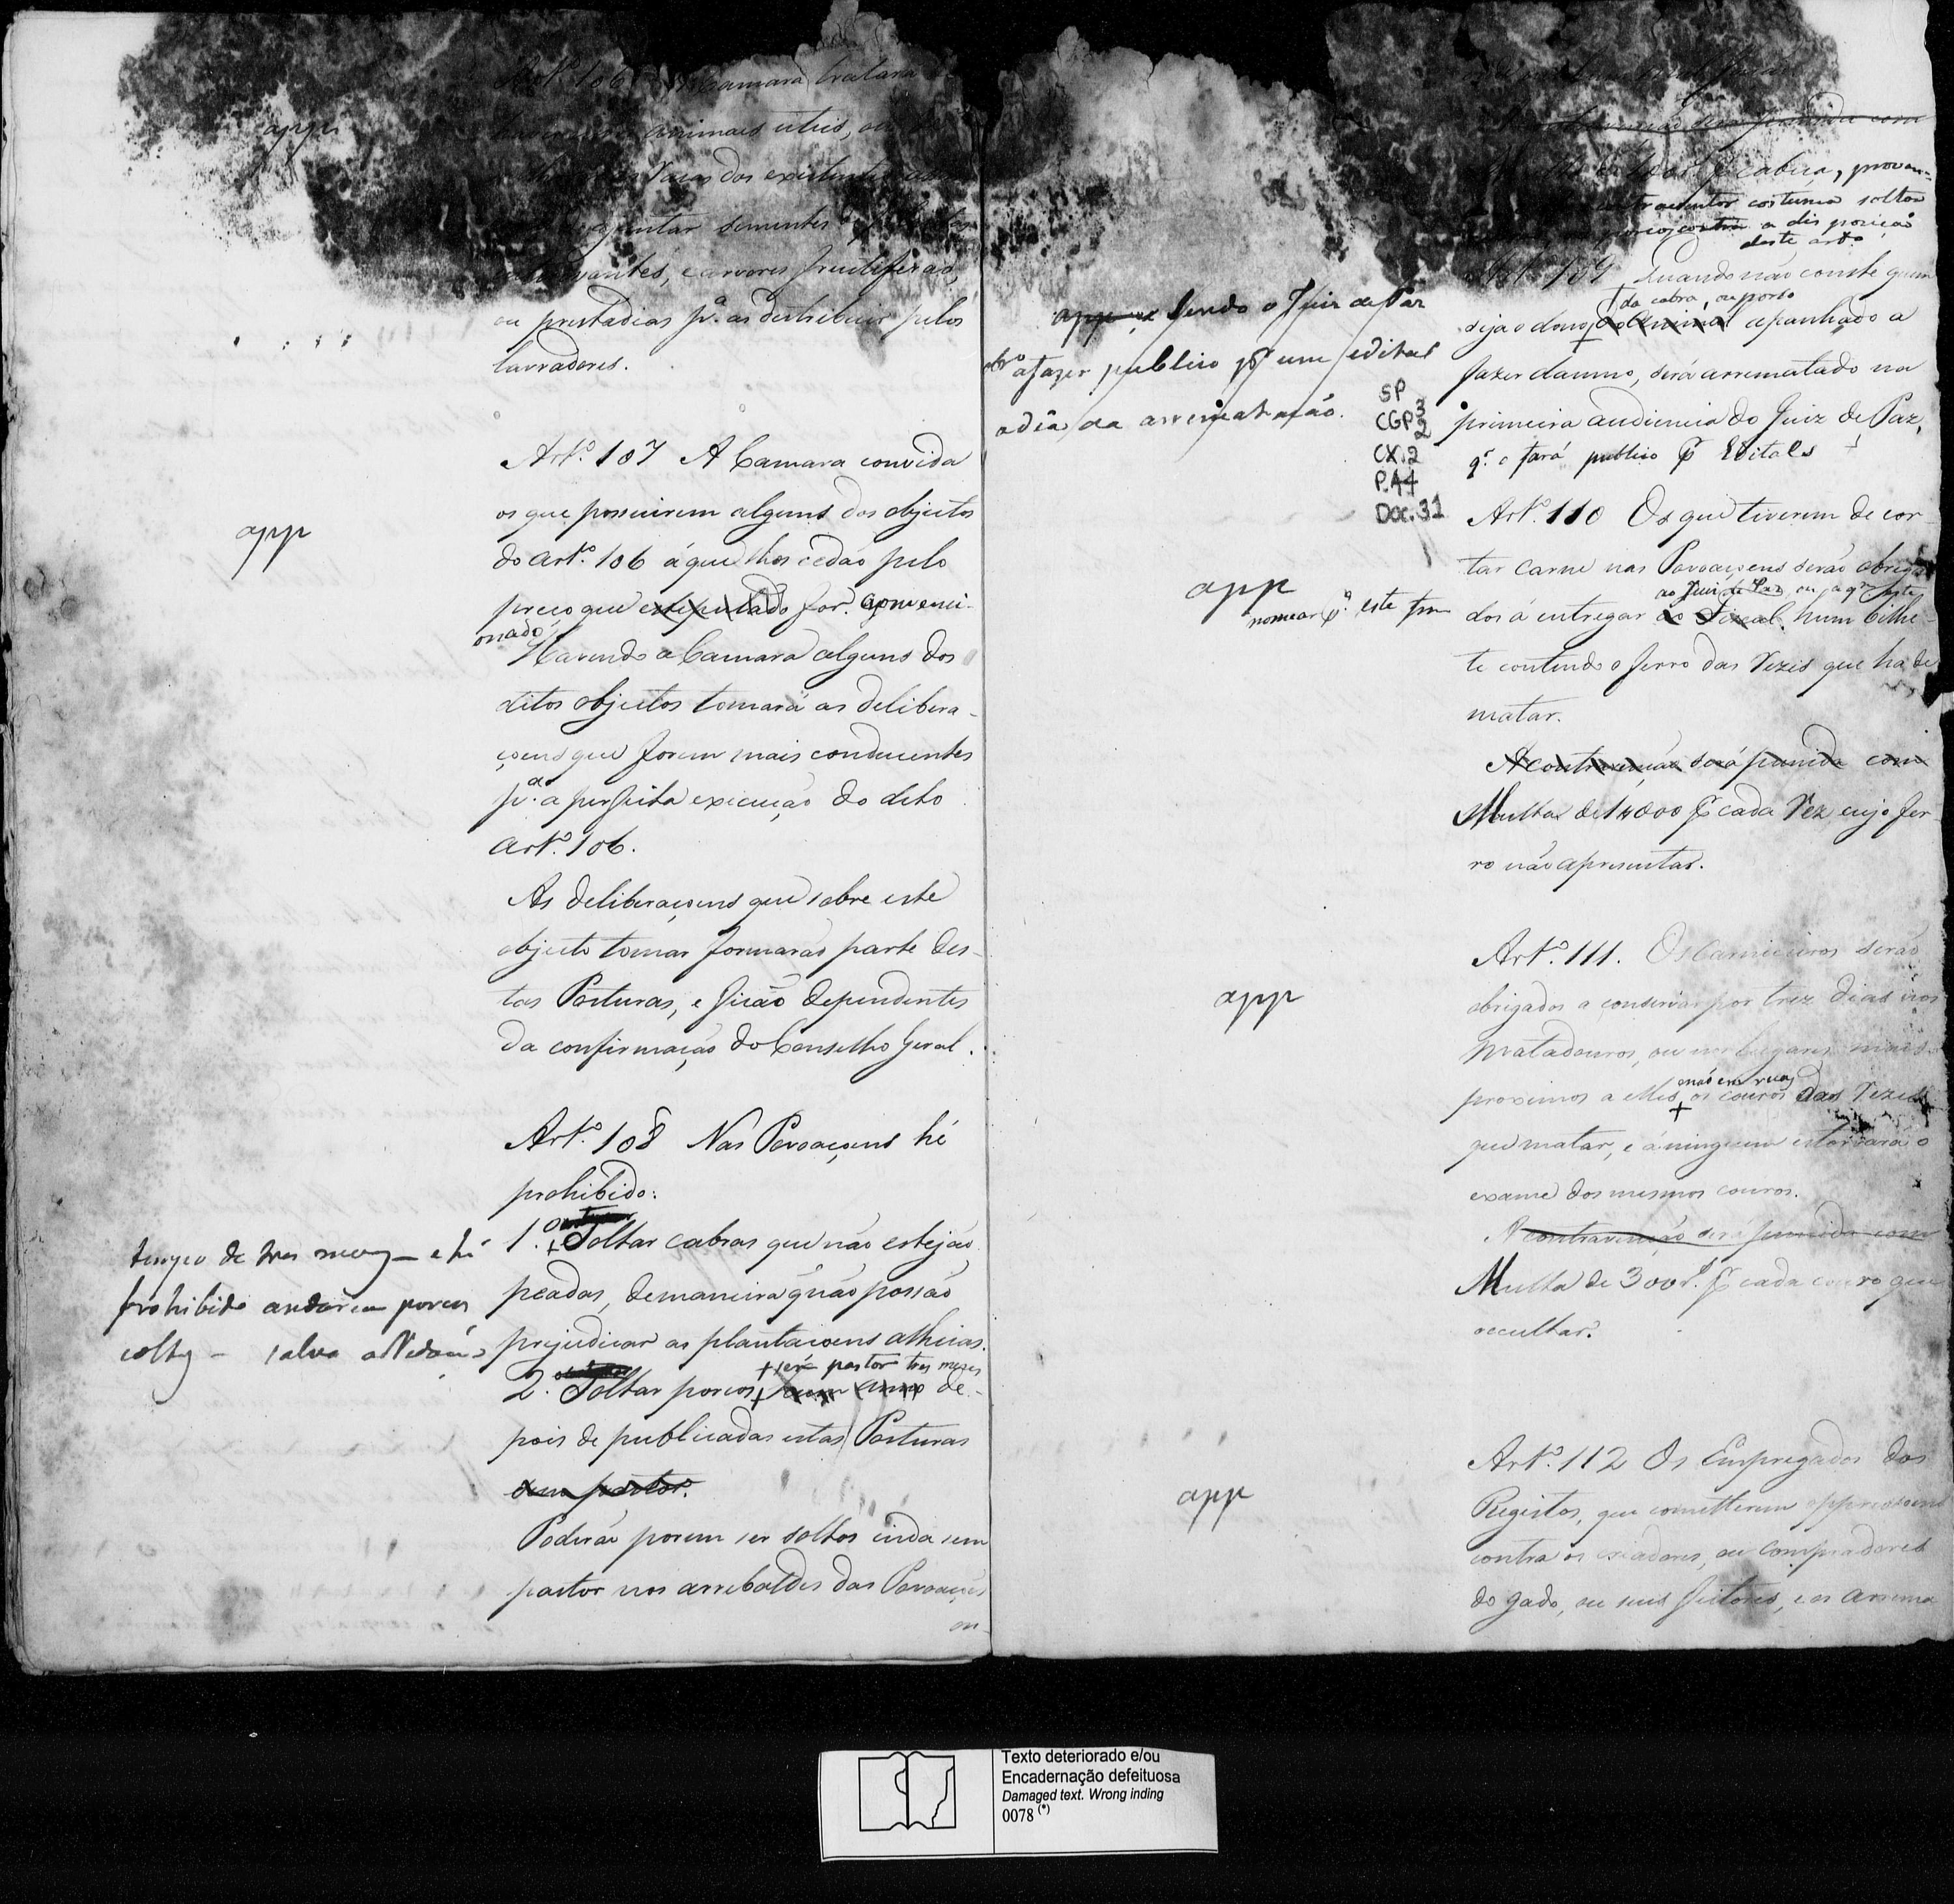 app
Artº. 106 Camara tratara
animais uteis, ou
Vacas dos existentes
sementes
, e arvores fructiferas,
ou prestadias pª. as destribuir pelos
lavradores.
app
Artº. 107 A Camara convida
os que possuirem alguns dos objectos
do artº. 106 á que lhos cedão pelo
preço que estepulado for. convenci-
onado
Havendo a Camara alguns dos
ditos objectos tomará as delibera-
çoens que forem mais conducentes
pª. a perfeita execução do dito
artº. 106.
As deliberaçoens que sobre este
objecto tomar formarão parte des-
tas Posturas, e ficão dependentes
da confirmação do Conselho Geral.
Artº. 108 Nas Povoaçoens hé
prohibido:
1.º Soltar cabras que não estejão
peadas, de maneira q não possão
prejudicar as plantaçoens alheias.
tempo de tres mezes – e hé
prohibido andarem porcos
soltos – salvo
+ sem pastor tres mezes
2. Soltar porcos + hum anno de-
pois de publicadas estas Posturas
sem pastor.
Poderão porem ser soltos inda sem
pastor nos arrebaldes das Povoaçoes
ou
A contravenção será punida com
cabeça, provan-
costuma soltar
porcos contra a disposição
deste artº
Artº. 109 Quando não conste quem
da cabra, ou porco
seja o dono + do animal apanhado a
fazer damno, será arrematado na
primeira audiencia do Juiz de Paz,
q. o fará publico p Editaes
app Sendo o Juiz de Paz
obrº a fazer publico pr um edital
o dia da arrematação.
SP
CGP3
2
CX.2
P.A4
Doc. 31
app
Artº. 110 Os que tiverem de cor-
tar carne nas Povoaçoens serão obriga-
ao Juiz de Paz, ou a qm este
nomear pª. este fim
dos á entregar ao Fiscal hum bilhe-
te contendo o ferro das Rezes que ha de
matar.
A contravenção será punida com
Multa de 1$000 p cada Rez, cujo fer-
ro não apresentar.
app
Artº. 111. Os Carniceiros serão
obrigados a conservar por trez dias nos
Matadouros, ou nos lugares mais
não em ruas
proximos a elles + os couros das Rezes
que matar, e á ninguem estorvará o
exame dos mesmos couros.
A contravenção será punida com
Multa de 300 r. p cada couro que
occultar.
app
Artº. 112 Os Empregados dos
Registos, que cometterem oppressoens
contra os criadores, ou Compradores
do gado, ou seus feitores, e os arrema
Texto deteriorado e/ou
Encadernação defeituosa
Damaged text. Wrong inding
0078 (*)